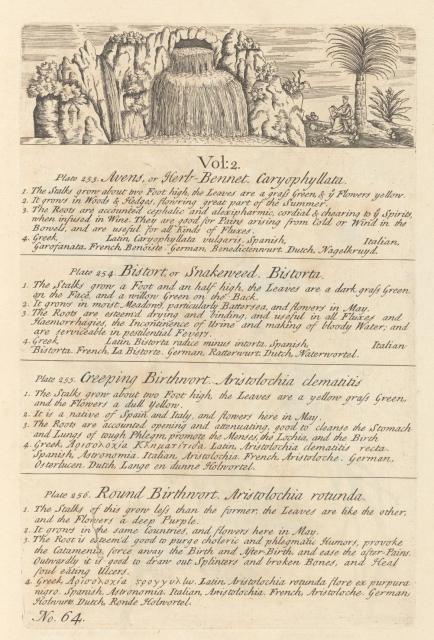 Vol: 2.
Plate 253. Avens, or Herb-Bennet. Caryophyllata.
1. The Stalks grow about two Foot high, the Leaves are a grass Green, & ye Flowers yellow.
2. It grows in Woods & Hedges, flowring great part of the Summer.
3. The Roots are accounted cephalic and alexipharmic, cordial & chearing to ye Spirits,
when infused in Wine. They are good for Pains arising from Cold or Wind in the
Bowels, and are useful for all Kinds of Fluxes.
4. Greek, Latin, Caryophyllata vulgaris, Spanish, Italian,
Garofanata. French, Benoiste. German, Benedictenwurt. Dutch, Nagelkruyd.
Plate 254. Bistort, or Snakeweed. Bistorta.
1. The Stalks grow a Foot and an half high, the Leaves are a dark grass Green
on the Face, and a willow Green on the Back.
2. It grows in moist Meadows, particularly Battersea, and flowers in May.
3. The Roots are esteem'd drying and binding, and useful in all Fluxes and
Haemorrhagies, the Incontinence of Urine and making of bloody Water; and
are serviceable in pestilential Fevers.
4. Greek, Latin, Bistorta radice minus intorta. Spanish, Italian
Bistorta. French, La Bistorte. German, Natterwurt. Dutch, Naterwortel.
Plate 255. Creeping Birthwort. Aristolochia clematitis
1. The Stalks grow about two Foot high, the Leaves are a yellow grass Green,
and the Flowers a dull Yellow.
2. It is a native of Spain and Italy, and flowers here in May.
3. The Roots are accounted opening and attenuating, good to cleanse the Stomach
and Lungs of tough Phlegm, promote the Menses, the Lochia, and the Birth.
4. Greek, Latin, Aristolochia clematitis recta.
Spanish, Astronomia. Italian, Aristolochia. French, Aristoloche. German,
Osterlucen. Dutch, Lange en dunne Holwortel.
Plate 256. Round Birthwort. Aristolochia rotunda
1. The Stalks of this grow less than the former, the Leaves are like the other,
and the Flowers a deep Purple.
2. It grows in the same Countries, and flowers here in May.
3. The Root is esteem'd good to purge choleric and phlegmatic Humors, provoke
the Catamenia, force away the Birth and After-Birth, and ease the after-Pains.
Outwardly it is good to draw out Splinters and broken Bones, and Heal
foul eating Ulcers.
4. Greek, Latin, Aristolochia rotunda flore ex purpura
nigro. Spanish, Astronomia. Italian, Aristolochia. French, Aristoloche. German,
Holwurt. Dutch, Ronde Holwortel.
No. 64.